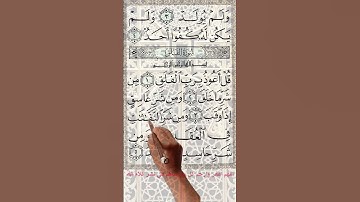 وَلَمْ يُولَدْ ٣ وَلَمْ
يَكُن لَّهُ كُفُوًا أَحَدٌ ٤
سُورَةُ الْفَلَقِ
بِسْمِ اللَّهِ الرَّحْمَٰنِ الرَّحِيمِ
قُلْ أَعُوذُ بِرَبِّ الْفَلَقِ ١ مِن
شَرِّ مَا خَلَقَ ٢ وَمِن شَرِّ غَاسِقٍ
إِذَا وَقَبَ ٣ وَمِن شَرِّ النَّفَّٰثَٰتِ
فِي الْعُقَدِ وَمِن
شَرِّ حَاسِدٍ ٥